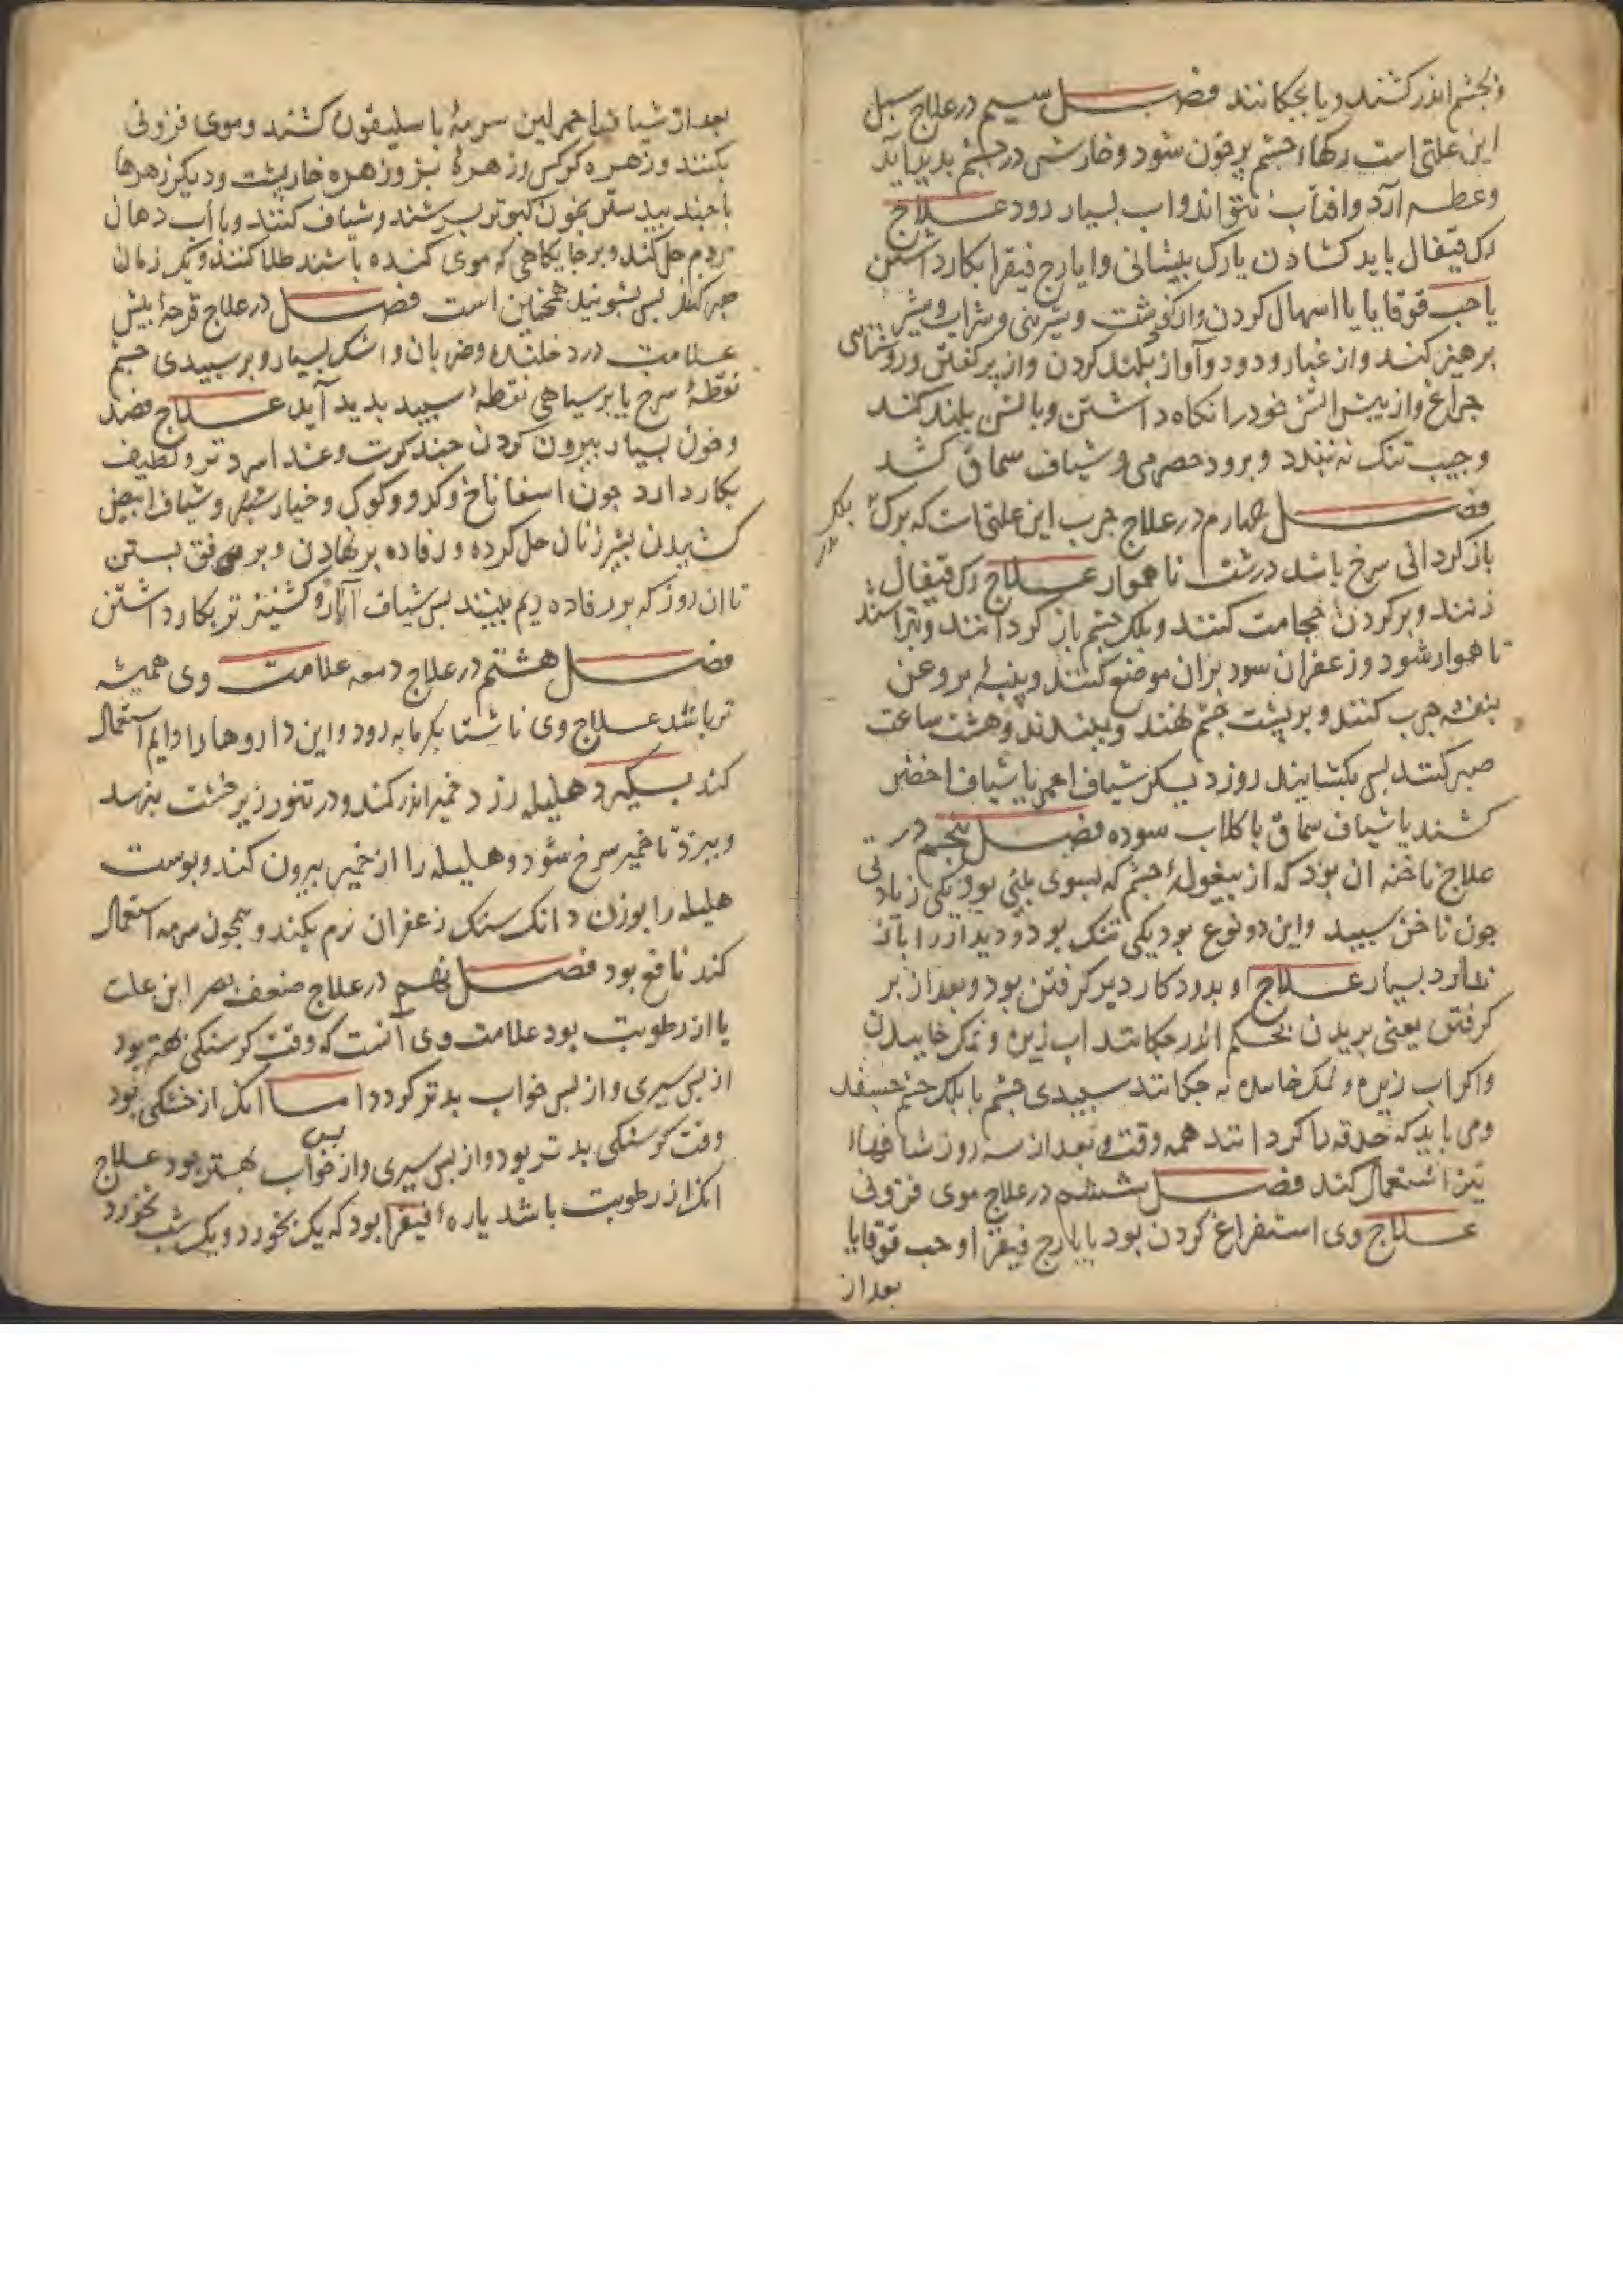 و بجشم اندر کشند و یا بجکانند فصل سیم در علاج سبل
این علتی است رکهاء جشم پرخون شود و خارشی در جشم بدید آید
و عطسه آرد و افتاب نتواند و اب بسیار رود علاج
رک قیفال باید کشادن یا رک پیشانی و ایارج فیقرا بکار داشتن
یا حب قوقایا یا اسهال کردن و از کوشت و شیرینی و شراب و شیر
برهیز کند و از غبار و دود و آواز بلند کردن و از پر کفتن و روشنائی
جراغ و از بیش اتش خود را نکاه داشتن و بالش بلند کند
و جیب تنک نه بندد و برود حصرمی و شیاف سماق کشد
فصل جهارم در علاج جرب این علتی است که برک
بلک
باز کردانی سرخ باشد درشت ناهموار علاج رک قیفال
زنند و بر کردن حجامت کنند و بلک جشم باز کردانند و بتراشند
تا هموار شود و زعفران سود بران موضع کنند و پنبهٔ بروغن
بنفشه جرب کنند و بر پشت جشم نهند و ببندند و هشت ساعت
صبر کنند بس بکشایند روز دیکر شیاف احمر یا شیاف اخضر
کشند یا شیاف سماق با کلاب سوده فصل پنجم در
علاج ناخنه ان بود که از بیغولهٔ جشم که بسوی بینی بود یکی زیادتی
جون ناخن سبید و این دو نوع بود یکی تنک بود و دیدار را باز
ندارد بسیار علاج او برود کار دیر کرفتن بود و بعد از بر
کرفتن یعنی بریدن بجشم اندر جکانند اب زیره و نمک خاییدن
و اکر اب زیره و نمک خاییده نه جکانند سبیدی جشم با بلک جشم بجسفد
و می باید که حدقه را کردانند همه وقت و بعد از سه روز شیافهاء
تیز استعمال کند فصل ششم در علاج موی فزونی
علاج وی استفراغ کردن بود با یارج فیقرا و حب قوقایا
بعد از
بعد از شیاف احمر لین سرمهٔ باسلیقون کشند و موی فزونی
بکنند و زهره کرکس و زهرهٔ بز و زهره خاربشت و دیکر زهرها
با جند بیدستر بخون کبوتر بسرشند و شیاف کنند و با اب دهان
مردم حل کند و بر جایکاهی که موی کنده باشند طلا کنند و یک زمان
صبر کنند بس بشویند همجنین است فصل در علاج قرحهٔ بیش
علامت درد خلنده و ضربان و اشک بسیار و بر سبیدی جشم
نقطهٔ سرخ یا بر سیاهی نقطهٔ سبید بدید آید علاج فصد
و خون بسیار بیرون کردن جند کرت و غذا سرد تر و لطیف
بکار دارد جون اسفاناخ و کدو و کوک و خیار شنبر و شیاف ابیض
کشیدن بشیر زنان حل کرده و رفاده بر نهادن و برفق بستن
تا ان روز که بر رفاده ریم ببینند بس شیاف آبار و کشنیز تر بکار داشتن
فصل هشتم در علاج دمعه علامت وی همیشه
تر باشد علاج وی ناشتا بکرمابه رود و این داروها را دایم استعمال
کند بسکیرد هلیله زرد در خمیر اندر کند و در تنور زیر خشت بنهد
و ببزد تا خمیر سرخ شود و هلیله را از خمیر بیرون کند و بوست
هلیله را بوزن دانک سنک زعفران نرم بکند و همجون سرمه استعمال
کند نافع بود فصل نهم در علاج ضعف بصر این علت
یا از رطوبت بود علامت وی آنست که وقت کرسنکی بهتر بود
از بس سیری و از بس خواب بدتر کردد اما انک از خشکی بود
وقت کرسنکی بدتر بود و از بس سیری و از بس خواب بهتر بود علاج
انک از رطوبت باشد یارهٔ فیقرا بود که یک بخورد و یک شب نخورد